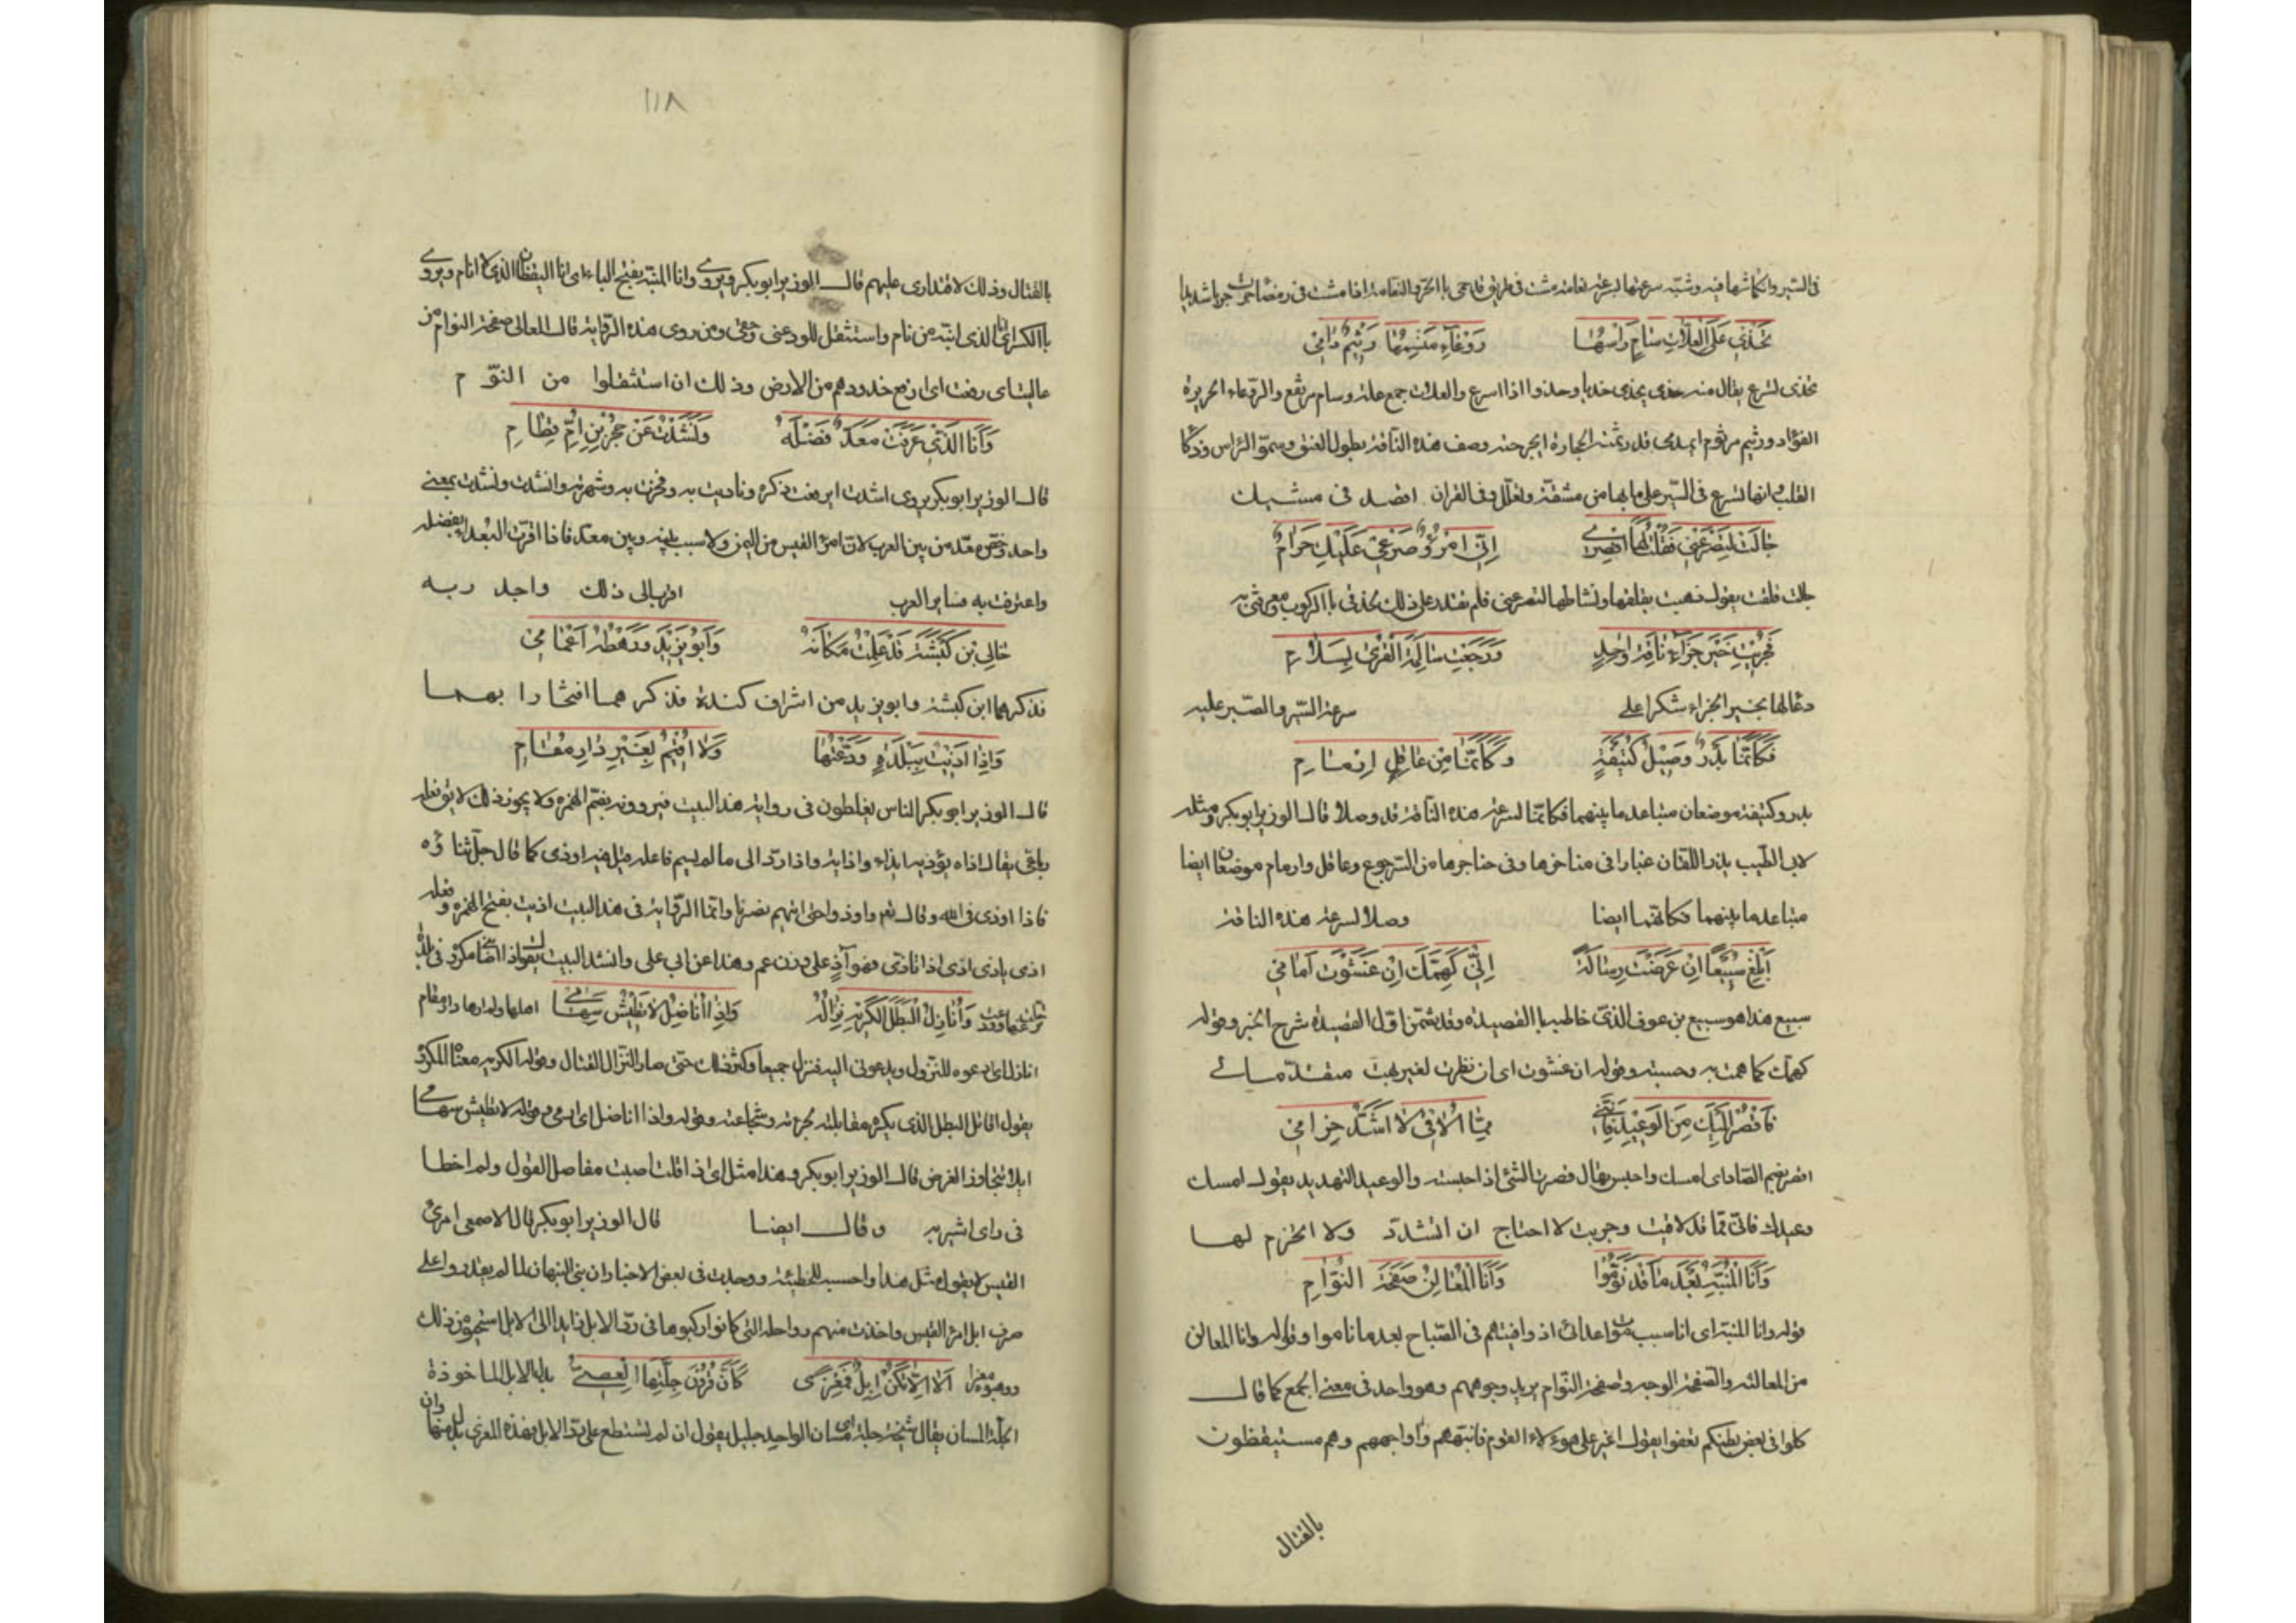 في السير وانكماشها فيه وشبه سرعتها بسرعة نعامة مشت في طريق
تخدي على العلات سام راسها روعاء منسمها رثيم دامي
تخدي تسرع يقال منه خدي يخدي خديا وخدوا اذا اسرع والعلات جمع علة وسام مرتفع والروعاء الحريزة
الفؤاد ورثيم مرثوم ايدمى قد رثمته الحجارة اي جرحته وصف هذه الناقة بطول العنق وسمو الراس وذكا
القلب وانها تسرع في السير على ما بها من مشقة وفي القران اقصد في مشيك
جالت لتصرعني فقلت لها اقصري اني امرؤ صرعي عليك حرام
جالت قلقت يقول ذهبت بقلقها ونشاطها لتصرعني فلم تقدر على ذلك لحذقي بالركوب ومعرفتي به
فجزيت خير جزاء ناقة واحد ورجعت سالمة القرى بسلام
دعا لها بخير الجزاء شكرا على سرعة السير والصبر عليه
فكانما بدر وصيل كتيفة وكانما من عاقل ارمام
بدر وكتيفة موضعان متباعد ما بينهما فكانما لسرعة هذه الناقة قد وصلا قال الوزير ابو بكر ومثله
لابي الطيب يذر اللقان غبارا في مناخرها وفي حناجرها من السرجوع وعاقل وارمام موضعان ايضا
متباعد ما بينهما فكانهما ايضا وصلا لسرعة هذه الناقة
ابلغ سبيعا ان عرضت رسالة اني كهمك ان عشوت امامي
سبيع هذا هو سبيع بن عوف الذي خاطب بالقصيدة وقد تقدم في اول القصيدة شرح الخبر وقوله
كهمك كما همت به وحسبته وقوله ان عشوت اي ان نظرت لغيرهبت متقدما لي
فاقصر اليك من الوعيد فانني مما الاقي لا اشد حزامي
اقصر بضم الصاد اي امسك واحبس يقال قصرت الشئ اذا حبسته والوعيد التهديد يقول امسك
وعيدك فاني مما قد لاقيت وجربت لا احتاج ان اتشدد ولا اتحزم لها
وانا المنبه بعد ما قد نوموا وانا المعالن صفحة النوام
قوله وانا المنبه اي انا سبب اعدائي اذ وافيتهم في الصباح بعد ما ناموا وقوله وانا المعالن
من المعالنة والصفحة الوجه وصفحة النوام يريد وجوههم وهو واحد في معنى الجمع كما قال
كلوا في بعض بطنكم تعفوا يقول اغير على هؤلاء القوم فانبههم واواجههم وهم مستيقظون
بالقتال
١١٨
بالقتال وذلك لاقتداري عليهم قال الوزير ابو بكر ويروى وانا المنبه بفتح الباء اي انا اليقظان الذي لا انام ويروى
بالكسر اي انا الذي انبه من نام واستثقل للود عني ومن روى هذه الرواية قال المعالي صفحة النوام من
عاليت اي رفعت اي ارفع خدودهم من الارض وذلك ان استثقلوا من النوم
وانا الذي عرفت معد فضله ونشدت عن حجر بن ام قطام
قال الوزير ابو بكر يروى انشدت اي رفعت ذكره وناديت به وفخرت به وشهرته وانشدت ونشدت بمعنى
واحد وخص معد من بين العرب لان امرؤ القيس من اليمن ولا سبب بينه وبين معد فاذا اقرت البعداء بفضله
واعترفت به فسائر العرب اقرب الى ذلك واجد ربه
خالي بن كبشة قد علمت مكانه وابو يزيد ورهطه اعمامي
فذكرهما ابن كبشة وابو يزيد من اشراف كندة فذكرهما افتخارا بهما
واذا اذيت ببلدة ودعتها ولا اقيم بغير دار مقام
قال الوزير ابو بكر الناس يغلطون في رواية هذا البيت فيروونه بضم الهمزة ولا يجوز ذلك لان فعله
رباعي يقال اذاه يؤذيه ايذاء واذاية واذا رد الى ما لم يسم فاعله قيل فيه اوذى كما قال جل ثناؤه
فاذا اوذي في الله وقال تعالى واوذوا حتى اتيهم نصرنا وانما الرواية في هذا البيت اذيت بفتح الهمزة وفعله
اذي ياذى اذى اذا تاذى فهو آذ على وزن عم وهذا عن ابي علي وانشد البيت يقول اذا
وانازل البطل الكريه نزاله واذا اناضل لا تطيش سهامي اهلها ولم ارها دار مقام
انازل اي ادعوه للنزول ويدعوني اليه فننزل جميعا وكثر ذلك حتى صار النزال القتال وقوله الكريه معناه المكروه
يقول اقاتل البطل الذي يكره مقابلته لجرءته وشجاعته وقوله واذا اناضل اي ارمي وقوله لا تطيش سهامي
اي لا تتجاوز الغرض قال الوزير ابو بكر وهذا مثل اي اذا قلت اصبت مفاصل القول ولم اخطا
في راي اشير به وقال ايضا قال الوزير ابو بكر قال الاصمعي امرئ
القيس لا يقول مثل هذا واحسبه للحطيئة ووجدت في بعض الاخبار ان بني النبهان لما لم يقدروا على
صرف ابل امرئ القيس واخذت منهم رواحله التي كانوا ركبوها في رد الابل
الا الا تكن ابل فمعزى كان قرون جلتها العصي بدل الابل الماخوذة
الجلة المسان يقال شيخة جلة اي مسان الواحد جليل يقول ان لم تستطع على رد الابل فهذه المعزى بدل منها وان